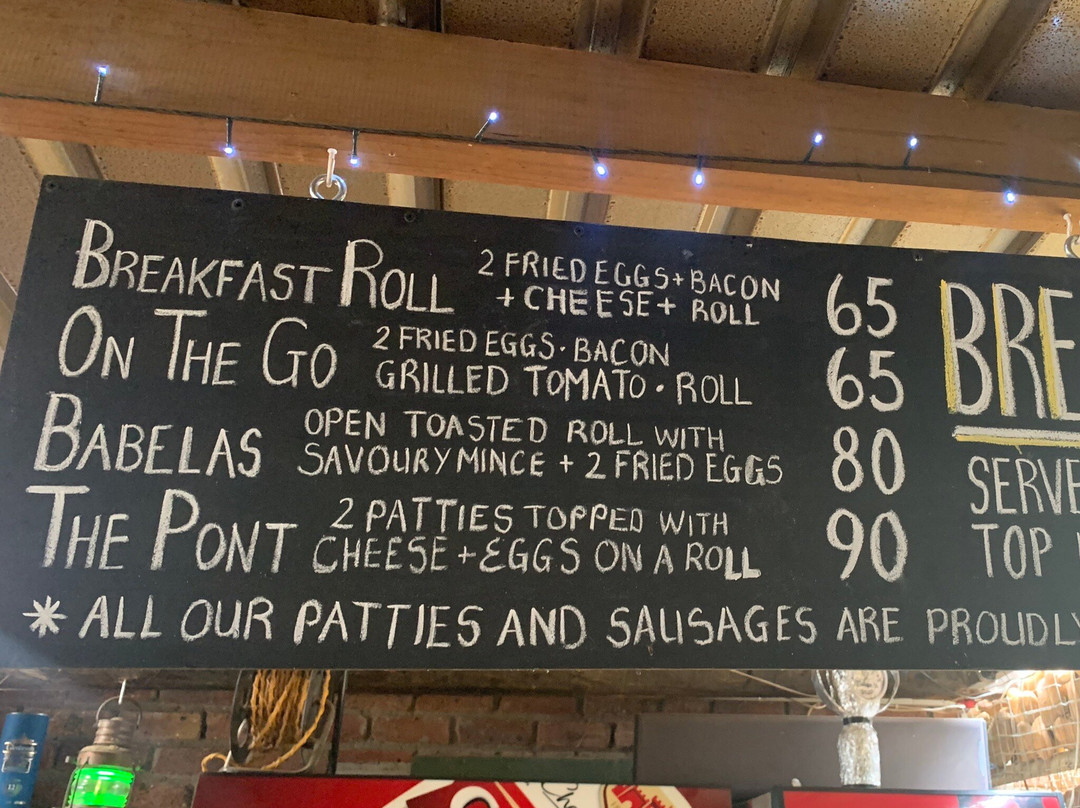 BREAKFAST ROLL 2 FRIED EGGS + BACON + CHEESE + ROLL 65
ON THE GO 2 FRIED EGGS · BACON GRILLED TOMATO · ROLL 65
BABELAS OPEN TOASTED ROLL WITH SAVOURY MINCE + 2 FRIED EGGS 80
THE PONT 2 PATTIES TOPPED WITH CHEESE + EGGS ON A ROLL 90
* ALL OUR PATTIES AND SAUSAGES ARE PROUDLY
BRE
SERVE
TOP